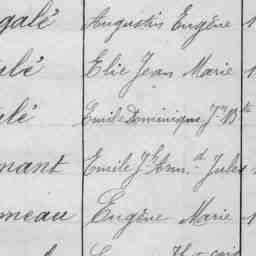 galé Augustin Eugène
alé Elie Jean Marie
alé Emile Dominique J. Bte
nant Emile J. Ed Jules
meau Eugène Marie